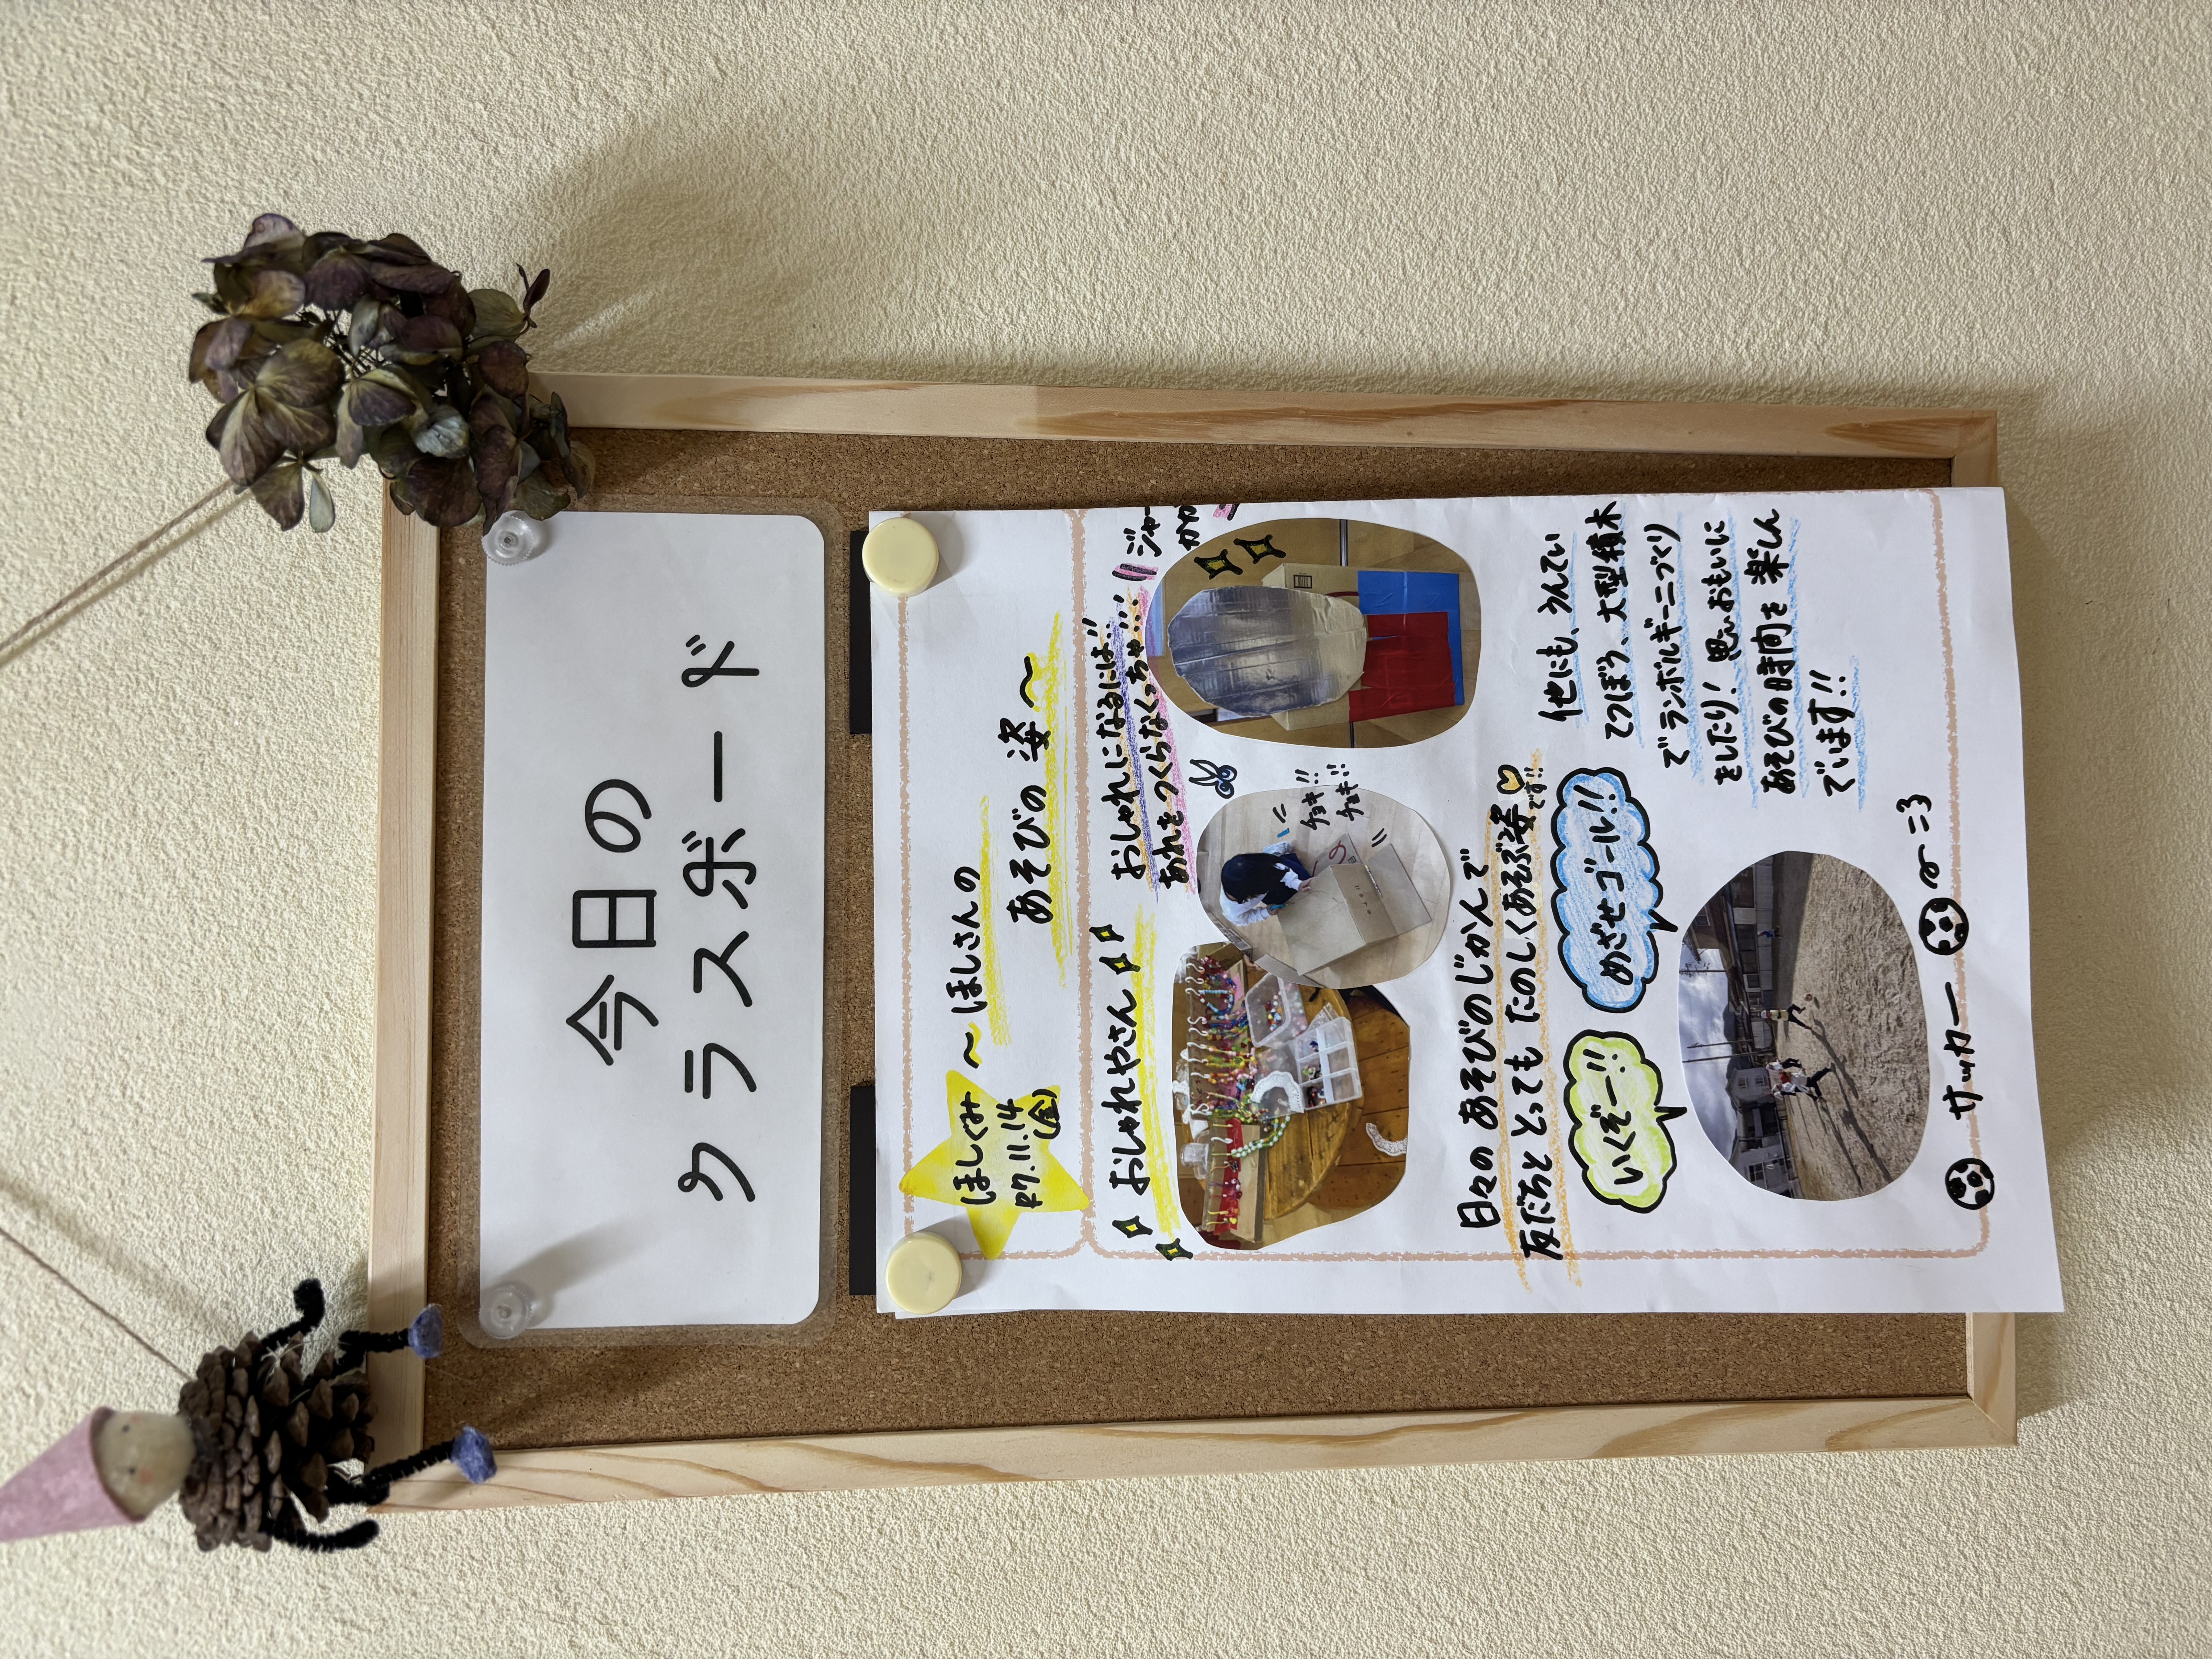 今日の
クラスボード
ほしぐみ
R7.11.14
(金)
～ほしさんの
あそびの姿～
おしゃれやさん
おしゃれになるには…!!
あれをつくらなくっちゃ…!!!
ジャー
チョキ!!
チョキ!!
日々のあそびのじかんで
友だちととってもたのしくあそぶ姿
です!!
いくぞー!!
めざせゴール!!
他にも、うんてい
てつぼう、大型積木
でランボルギーニづくり
をしたり！思いおもいに
あそびの時間を楽しん
でいます!!
サッカー